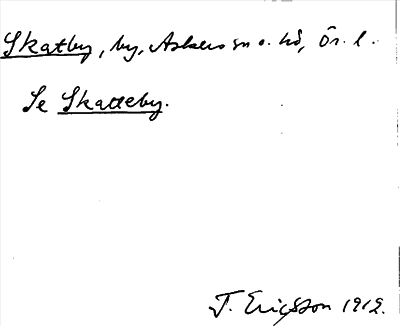 Skatby, by, Askers sn o. hd, Ör. l.
Se Skatteby.
T. Ericsson 1912.